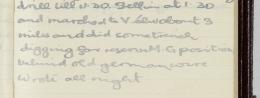 drill till 11.30. Fell in at 1.30
and marched to Vélu about 3
miles and did some trench
digging for reserve M.G position
behind old german wire
Wrote all night